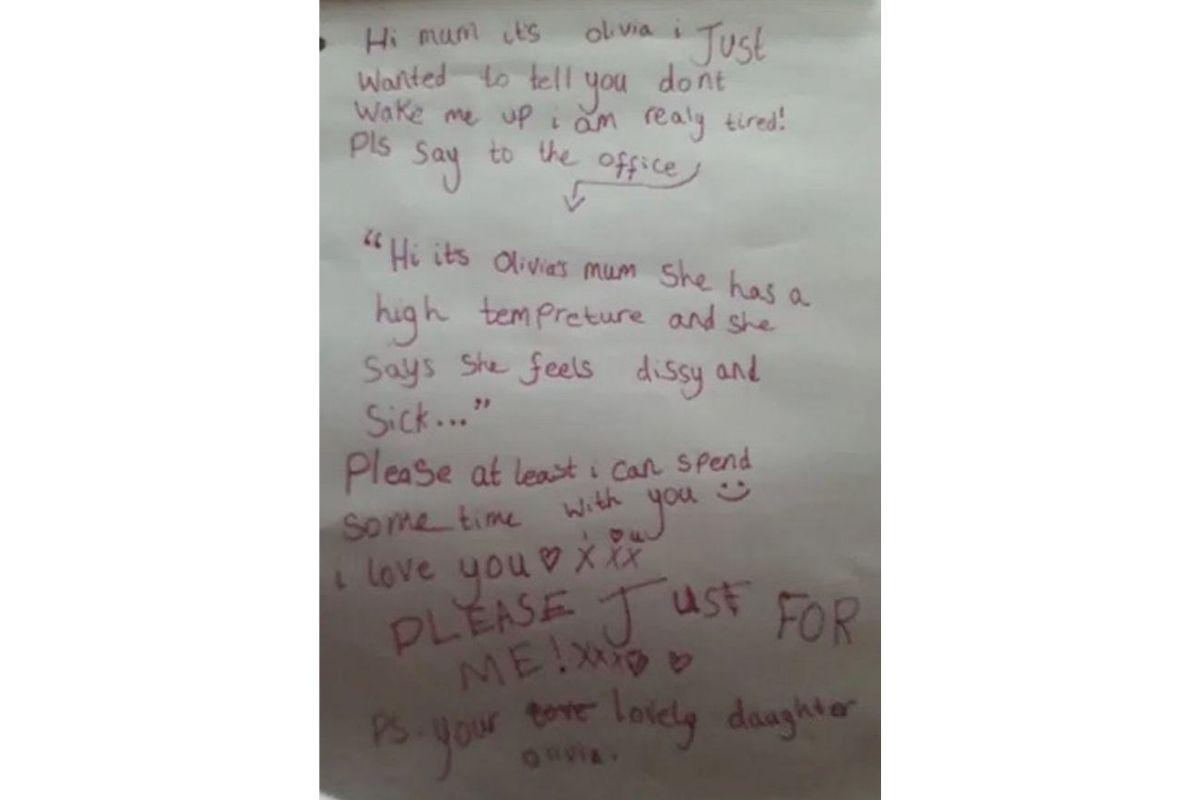 Hi mum it's olivia i Just
Wanted to tell you dont
Wake me up i am realy tired!
Pls say to the office
"Hi its Olivia's mum She has a
high tempreture and she
says she feels dissy and
sick..."
Please at least i can spend
some time with you
i ♡ u
i love you ♡ x x x
PLEASE JUST FOR
ME! xxx ♡ ♡
Ps. your love lovely daaghter
olivia.